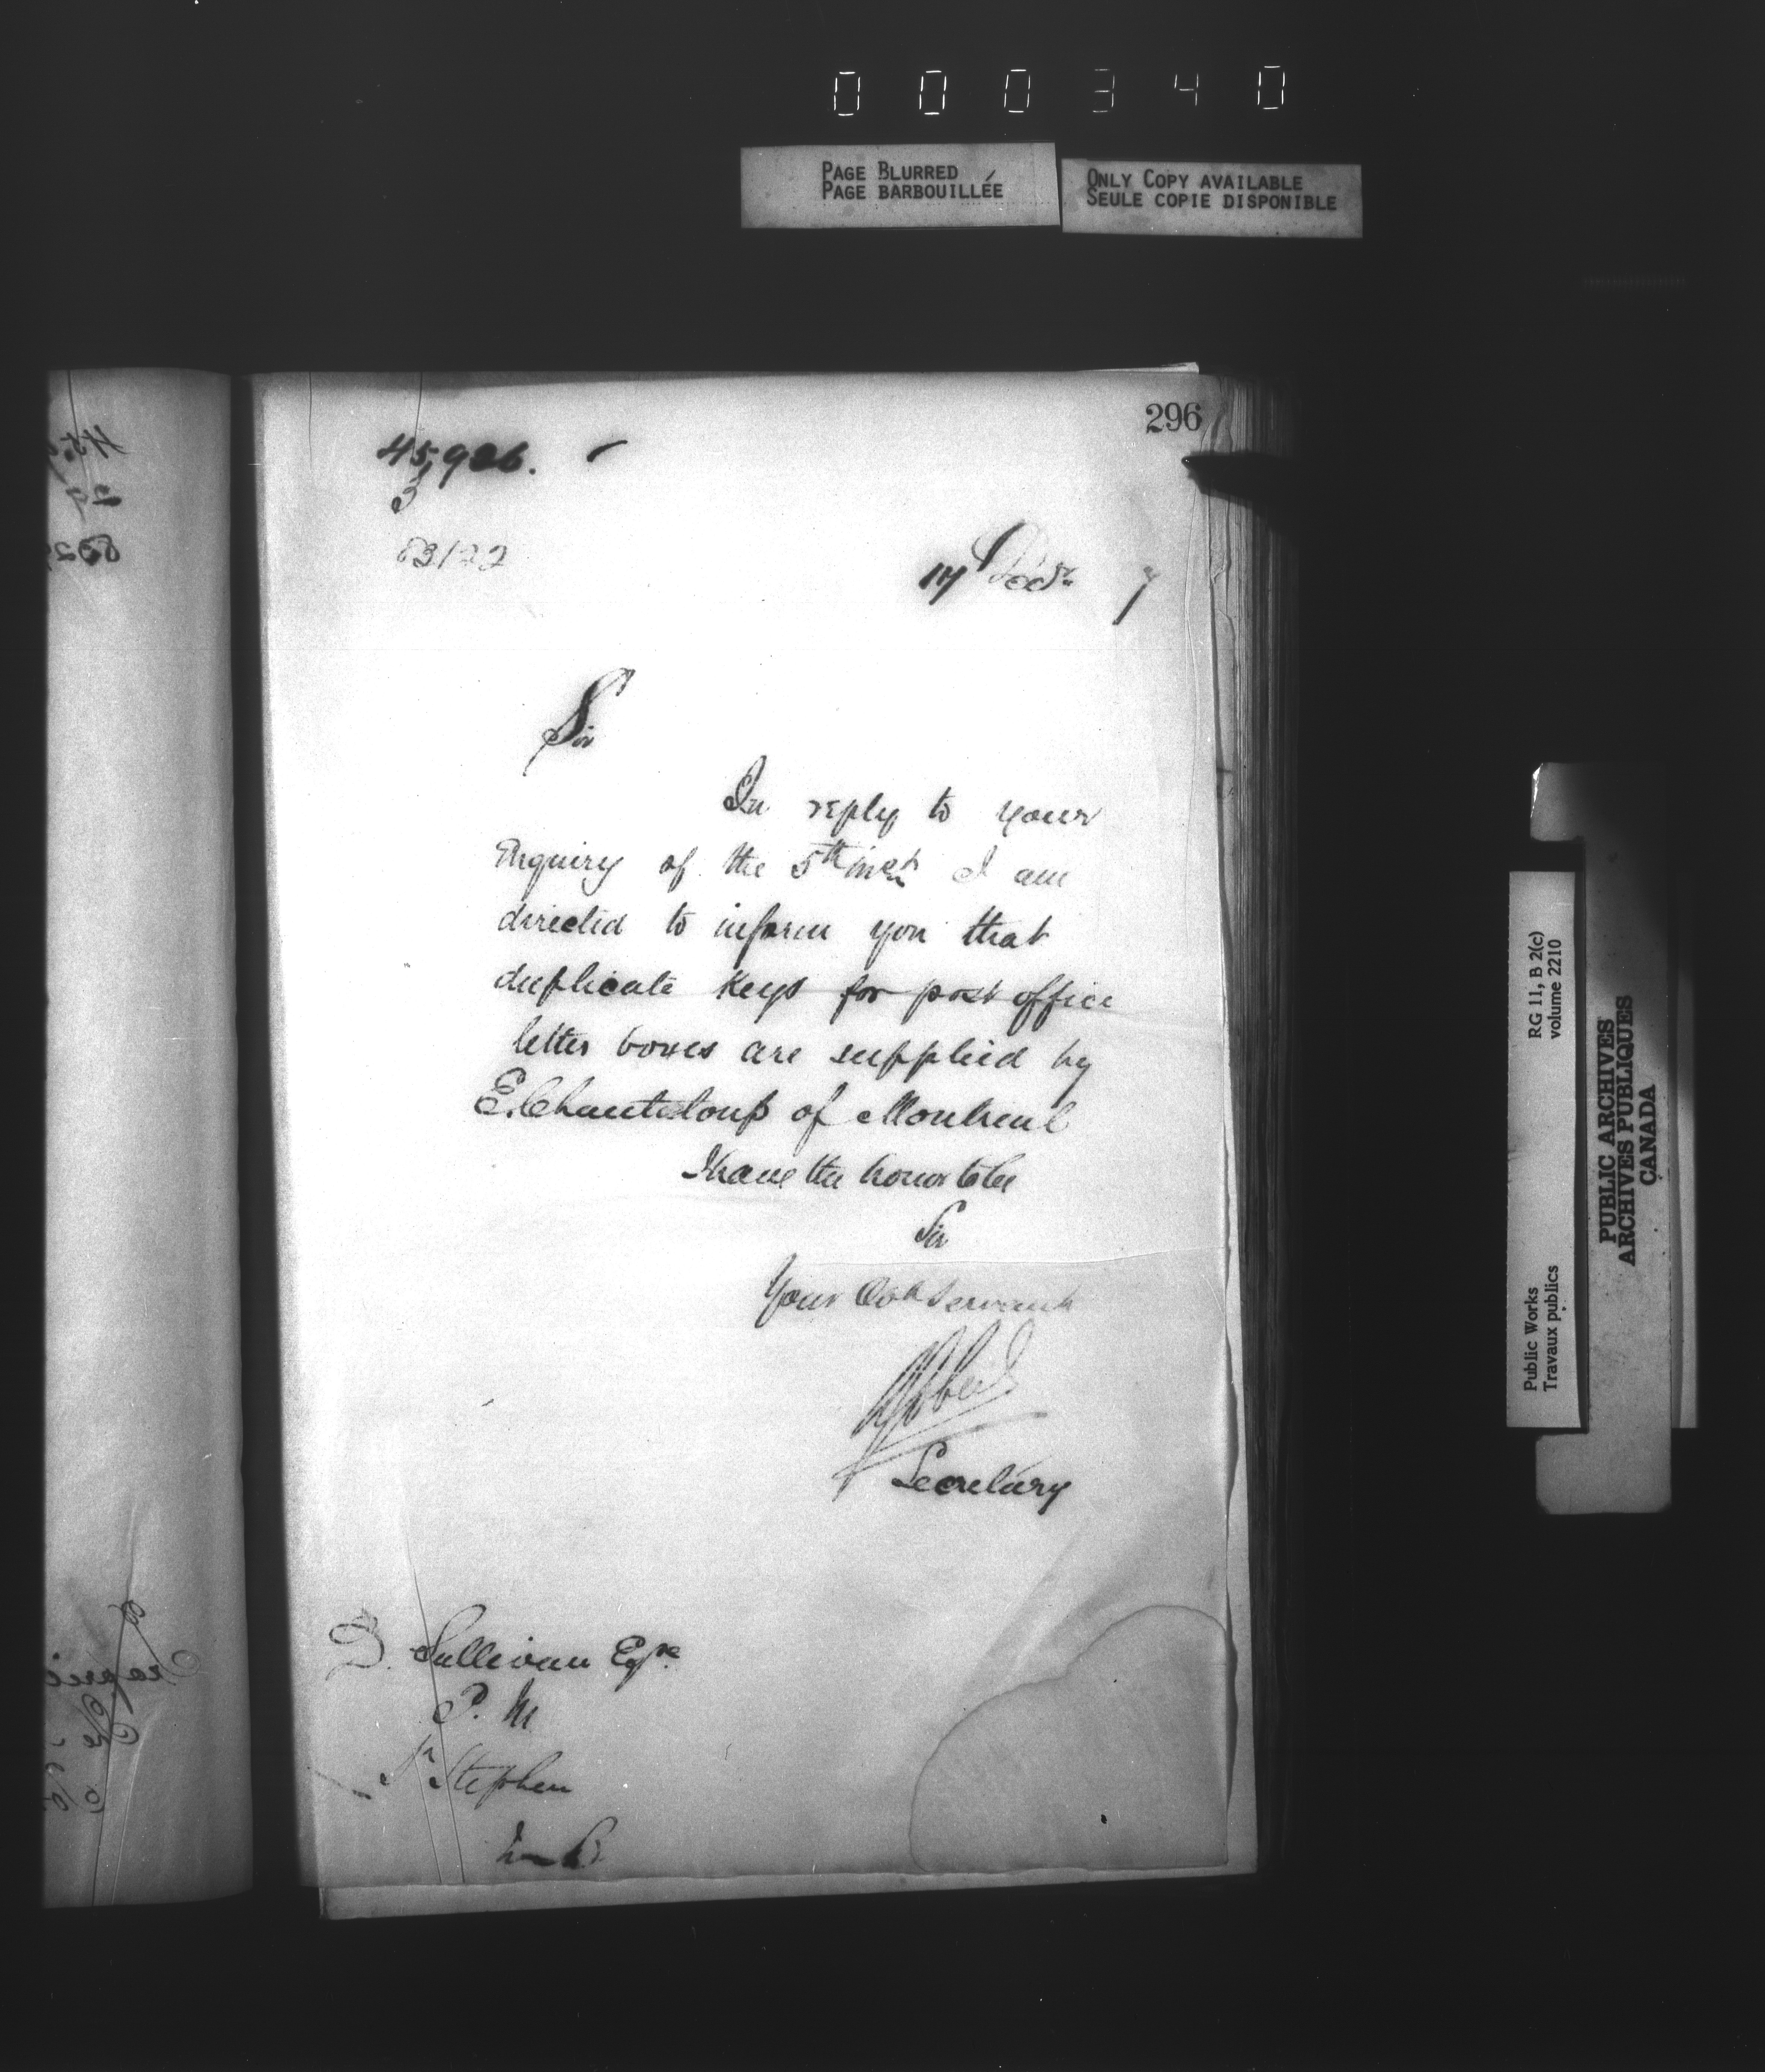 0 0 0 3 4 0
PAGE BLURRED
PAGE BARBOUILLÉE
ONLY COPY AVAILABLE
SEULE COPIE DISPONIBLE
296
45,926.
3
83122
17 Decr 7
Sir
In reply to your
Enquiry of the 5th inst I am
directed to inform you that
duplicate Keys for post office
letter boxes are supplied by
E. Chanteloup of Montreal
I have the honor to be
Sir
Your Obt Servant
Secretary
D. Sullivan Eqre
P. M
St Stephen
N B
RG 11, B 2(c)
volume 2210
Public Works
Travaux publics
PUBLIC ARCHIVES
ARCHIVES PUBLIQUES
CANADA